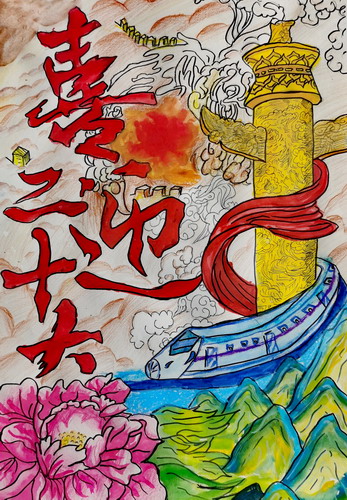 喜迎
二十大